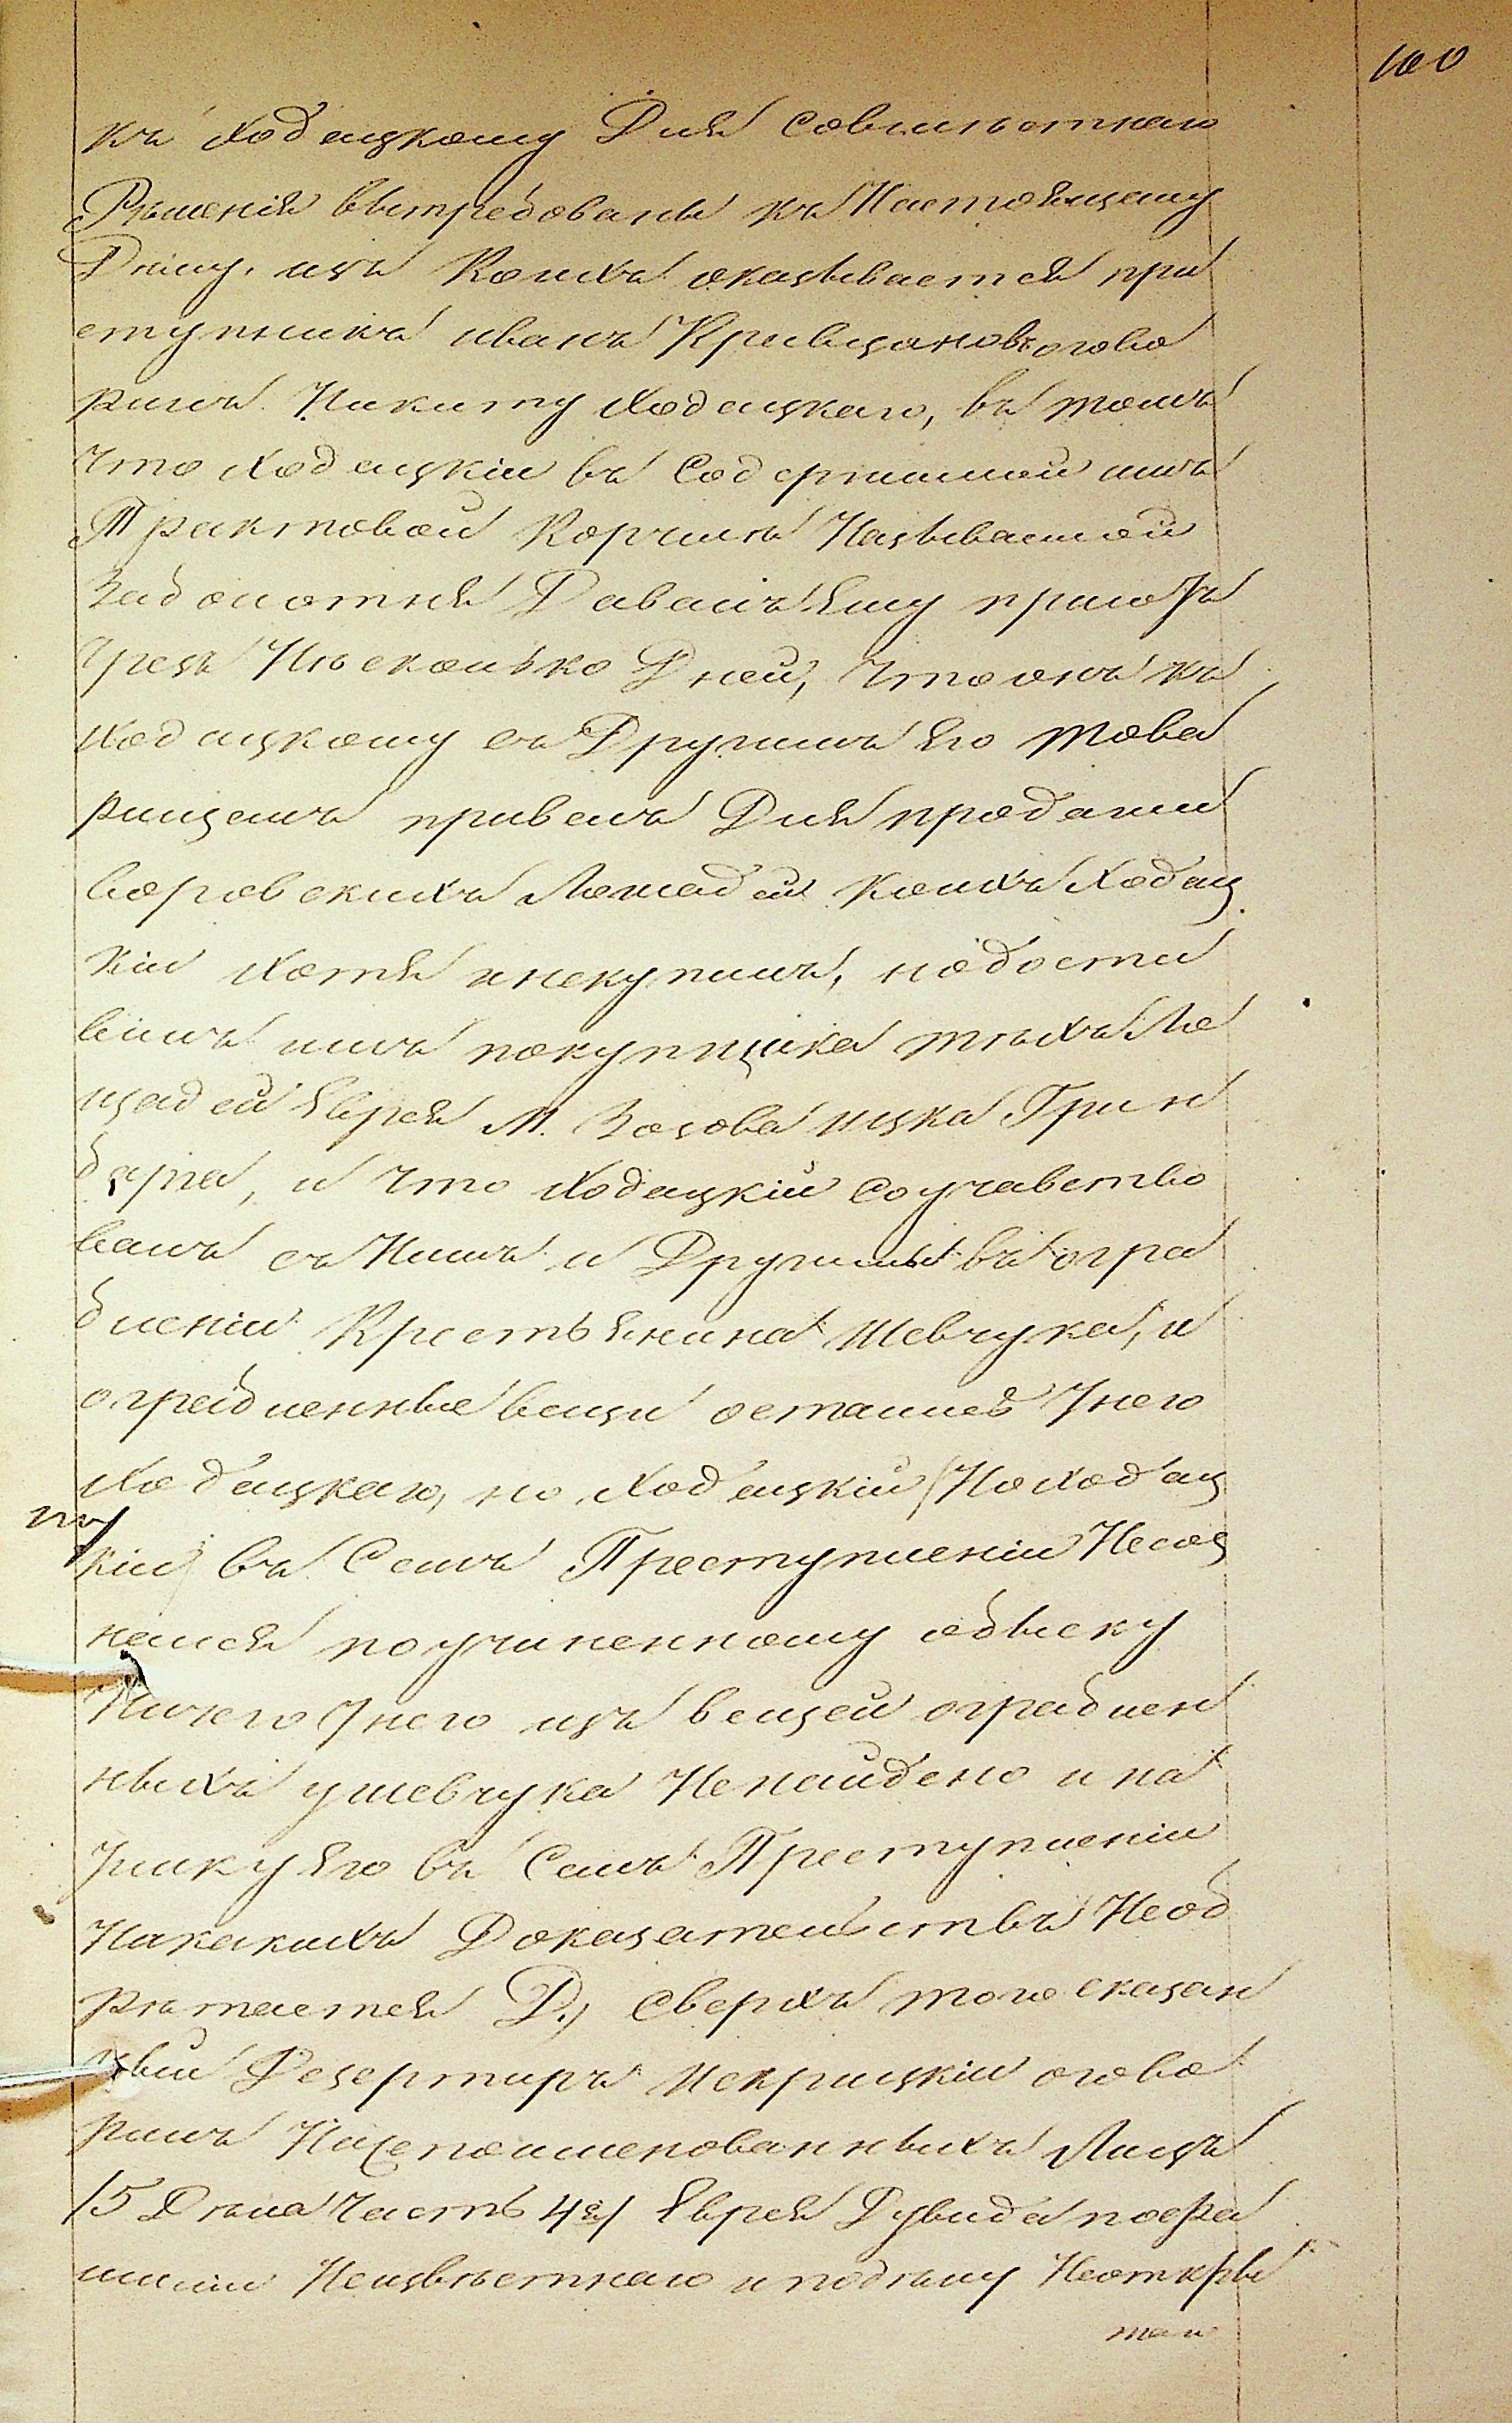 100
къ Ходацкому Для совмѣстнаго
Рѣшенія вытребованы къ Настоящему
Дѣлу. изъ Коихъ оказывается при
ступникъ иванъ Кривцановъ огово
рилъ Никиту Ходацкаго, въ томъ
что Ходацкій въ Содержимой имъ
Трактовой Корчмѣ Называемой
Заболотня Давалъ Ему притонъ
Чрезъ Нѣсколько Дней, что онъ къ
Ходацкому съ Другимъ Его това
рищемъ привелъ Для продажи
воровскихъ Лошадей Коихъ Ходац
кій хотя и некупилъ, но доста
вилъ имъ покупщика тѣхъ Ло
шадей Еврея М. Зозова ицка Грин
берга, и что Ходацкій соучавство
валъ съ Нимъ и Другими въ огра
бленіи Крестьянина Шевчука, и
ограбленные вещи остались Унего
Ходацкаго, но Ходацкій (Но Ходац
кій) въ Семъ Преступленіи Несоз
нался по учиненному обыску
Ничего Унего изъ вещей ограблен
ныхъ у шевчука Ненайдено и на
Улику Его въ Семъ Преступленіи
Никакихъ Доказательствъ Необ
рѣтается Д.) Сверхъ того сказан
ный Дезертиръ Искрицкій огово
рилъ Нижепоименованныхъ Лицъ
/5 Дѣла Часть 4я/ Еврея Дувида пофа
миліи Неизвѣстнаго и подѣлу Неоткры
таго